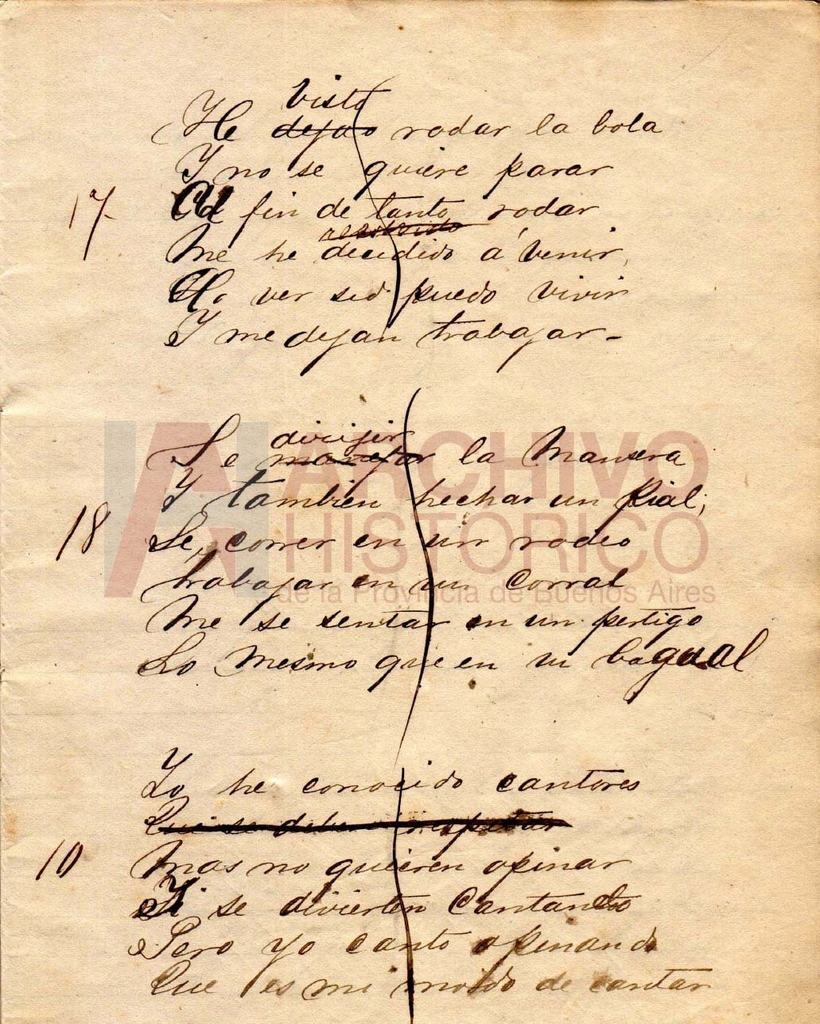 visto
He dejao rodar la bola
Y no se quiere parar
17- Al fin de tanto rodar
resolvido
Me he decidido á venir,
A ver si puedo vivir
Y me dejan trabajar-
dirijir
Se manejar la mansera
Y tambien hechar un pial;
18 Se correr en un rodeo
trabajar en un corral
Me se sentar en un pertigo
Lo mesmo que en un bagual
Yo he conocido cantores
Que se debe respetar
10 Mas no quieren opinar
Y se divierten cantando
Pero yo canto opinando
Que es mi modo de cantar
ARCHIVO
HISTORICO
de la Provincia de Buenos Aires